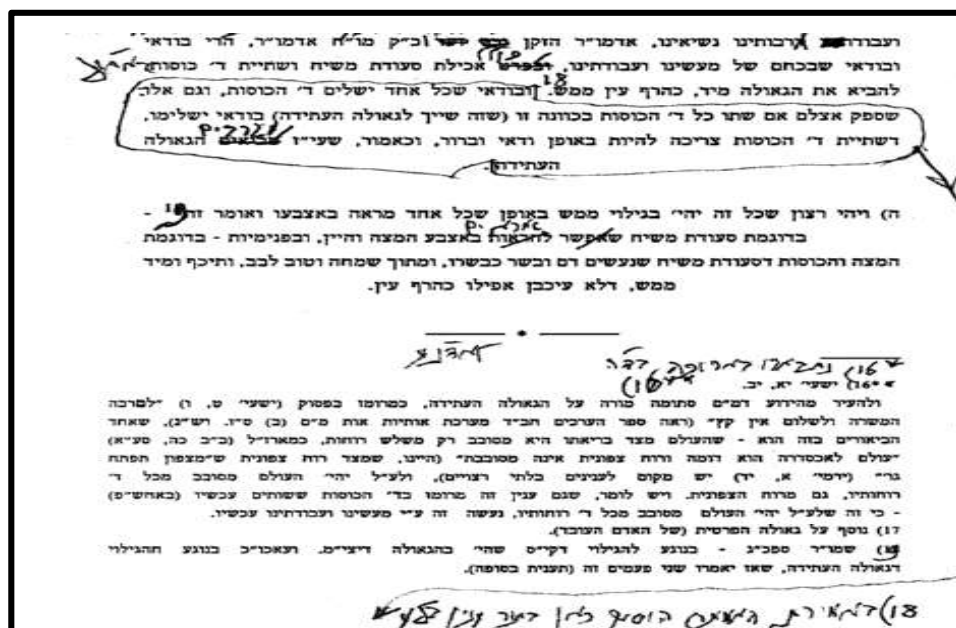 ועבודת רבותינו נשיאינו, אדמו״ר הזקן כ״ק מו״ח אדמו״ר, הרי בודאי
ובודאי שבכחם של מעשינו ועבודתינו, אכילת סעודת משיח ושתיית ד׳ כוסות
להביא את הגאולה מיד, כהרף עין ממש. 18 [ובודאי שכל אחד ישלים ד׳ הכוסות, וגם אלו
שספק אצלם אם שתו כל ד׳ הכוסות בכוונה זו (שזה שייך לגאולה העתידה) בודאי ישלימו,
דשתיית ד׳ הכוסות צריכה להיות באופן ודאי וברור, וכאמור, שעי״ז הגאולה
העתידה].
ה) ויהי רצון שכל זה יהי׳ בגילוי ממש באופן שכל אחד מראה באצבעו ואומר זה -
בדוגמת סעודת משיח שאפשר להראות באצבע המצה והיין, ובפנימיות - בדוגמת
המצה והכוסות דסעודת משיח שנעשים דם ובשר כבשרו, ומתוך שמחה וטוב לבב, ותיכף ומיד
ממש, דלא עיכבן אפילו כהרף עין.
16) ישעי׳ יא, יב.
ולהעיר מהידוע דמ״ם סתומה מורה על הגאולה העתידה, כמרומז בפסוק (ישעי׳ ט, ו) ״לםרבה
המשרה ולשלום אין קץ״ (ראה ספר הערכים חב״ד מערכת אותיות אות מ״ם (ב) ס״ז. וש״נ), שאחד
הביאורים בזה הוא - שהעולם מצד בריאתו היא מסובב רק משלש רוחות, כמארז״ל (ב״ב כה, סע״א)
״עולם לאכסדרה הוא דומה ורוח צפונית אינה מסובבת״ (היינו, שמצד רוח צפונית ש״מצפון תפתח
גו׳״ (ירמי׳ א, יד) יש מקום לענינים בלתי רצויים), ולע״ל יהי׳ העולם מסובב מכל ד׳
רוחותיו, גם מרוח הצפונית. ויש לומר, שגם ענין זה מרומז בד׳ הכוסות ששותים עכשיו (באחש״פ)
- כי זה שלע״ל יהי׳ העולם מסובב מכל ד׳ רוחותיו, נעשה זה ע״י מעשינו ועבודתינו עכשיו.
17) נוסף על גאולה הפרטית (של האדם העובד).
שמו״ר ספכ״ג - בנוגע להגילוי דקי״ס שהי׳ בהגאולה דיצי״מ. ועאכו״כ בנוגע מהגילוי
דגאולה העתידה, שאז יאמרו שני פעמים זה (תענית בסופה).